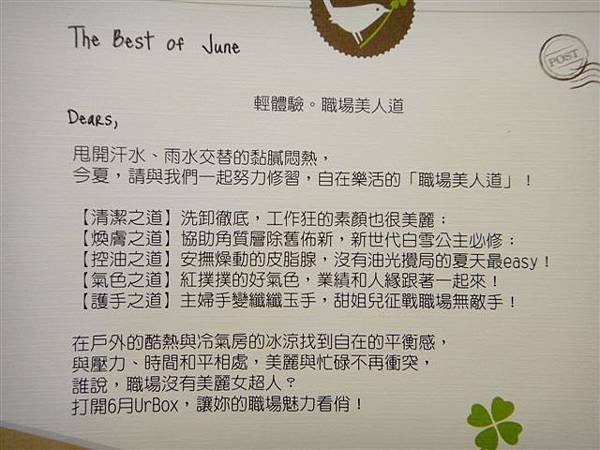 The Best of June
POST
輕體驗。職場美人道
Dears,
甩開汗水、雨水交替的黏膩悶熱，
今夏，請與我們一起努力修習，自在樂活的「職場美人道」！
【清潔之道】洗卸徹底，工作狂的素顏也很美麗；
【煥膚之道】協助角質層除舊佈新，新世代白雪公主必修；
【控油之道】安撫燥動的皮脂腺，沒有油光攪局的夏天最easy！
【氣色之道】紅撲撲的好氣色，業績和人緣跟著一起來！
【護手之道】主婦手變纖纖玉手，甜姐兒征戰職場無敵手！
在戶外的酷熱與冷氣房的冰涼找到自在的平衡感，
與壓力、時間和平相處，美麗與忙碌不再衝突，
誰說，職場沒有美麗女超人？
打開6月UrBox，讓妳的職場魅力看俏！